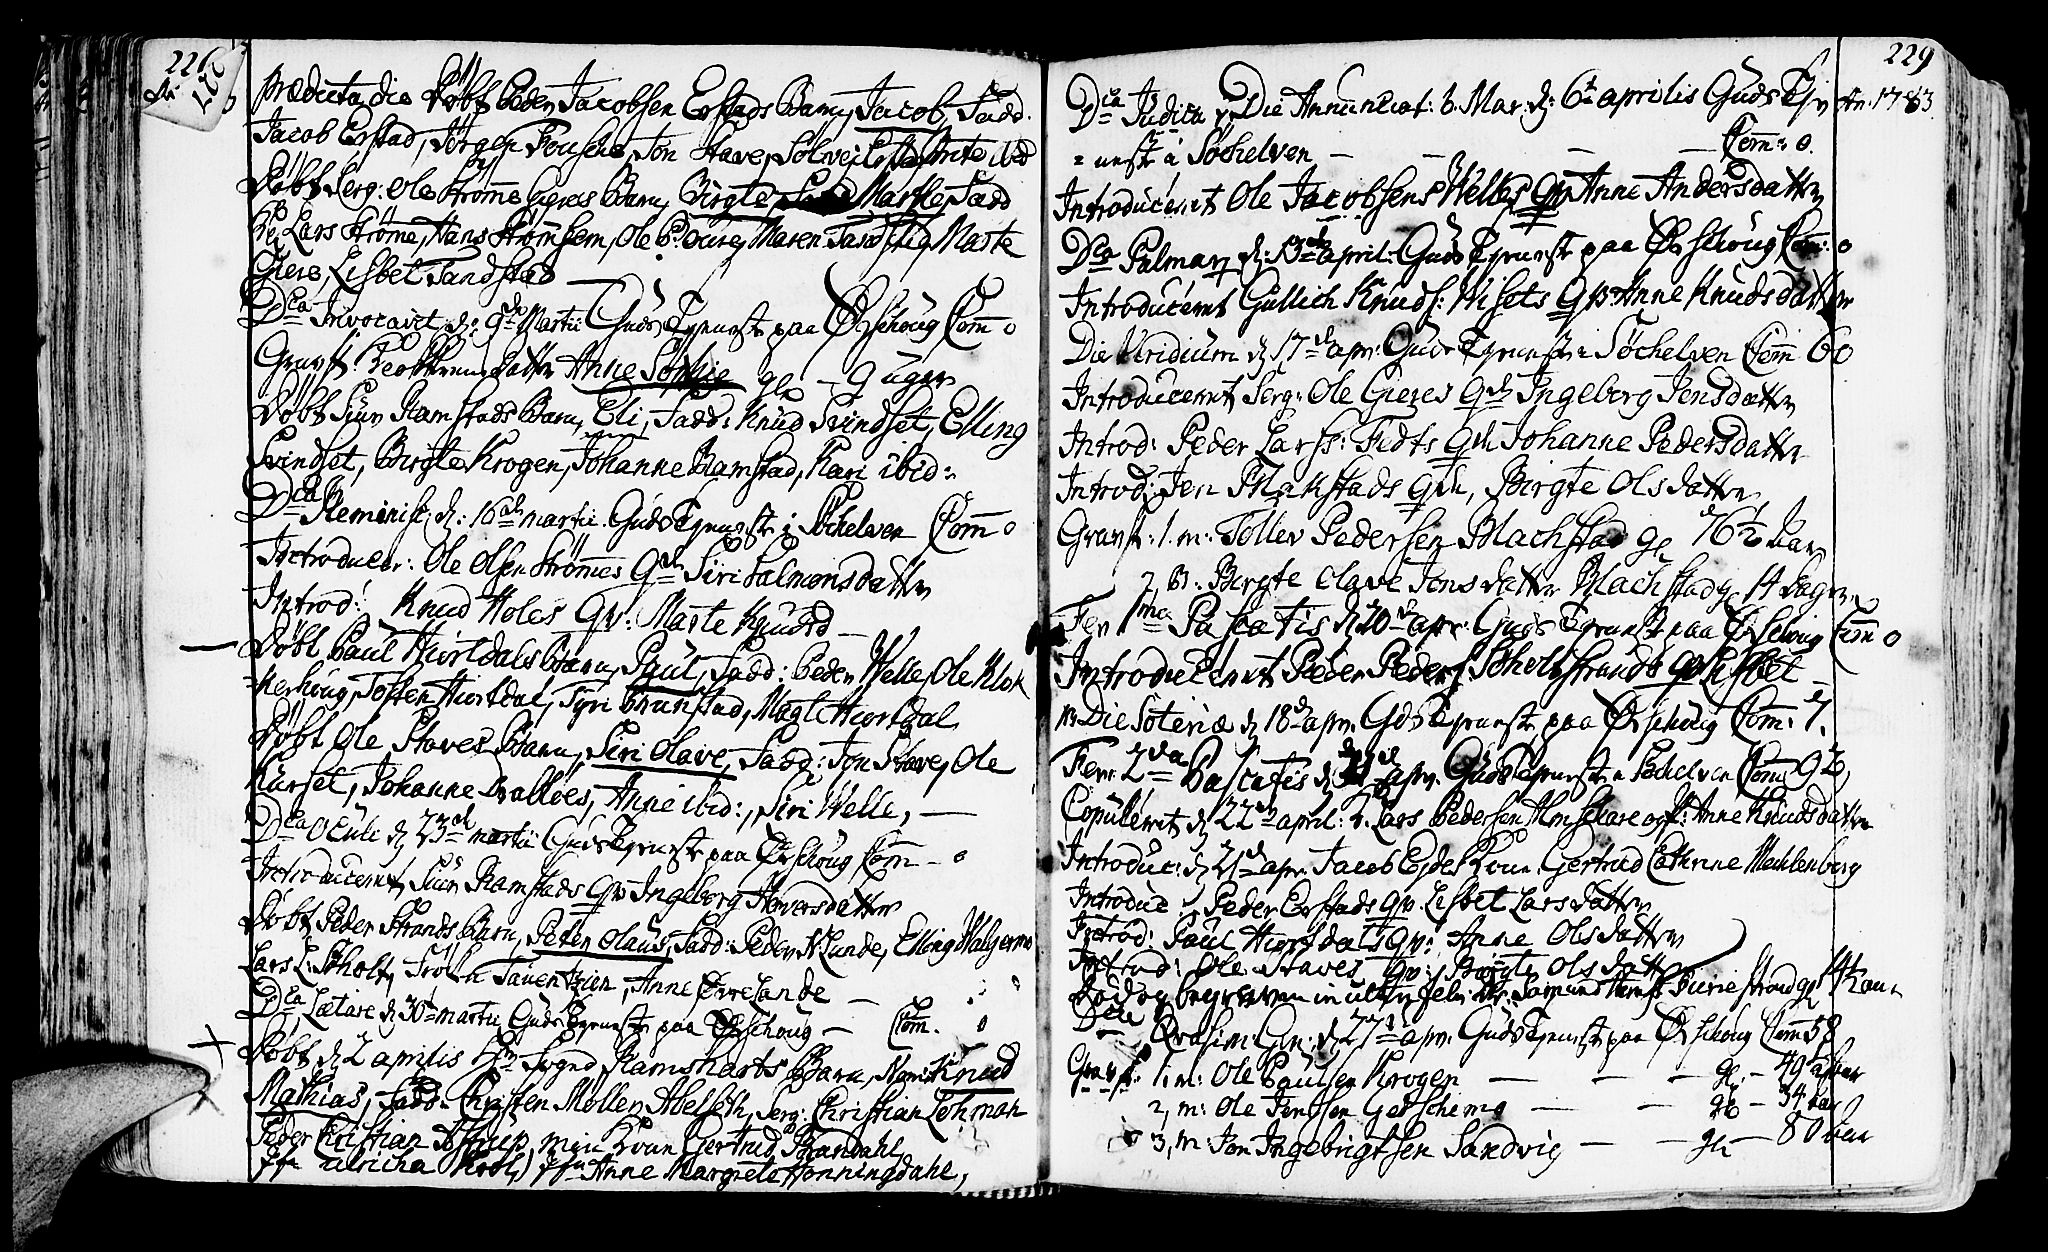 226
227
prædicta die Døbt Peder Jacobsen Erstads Barn, Jacob, Fadd.
Jacob Erstad, Jørgen, Jon Stave, Anite ibid
Døbt Serg: Ole Strømme Gieres Barn, Birgte Marthe Fadd
Lars Strøme, Hans Strømhem, Ole Maren Marte
Giere, Lisbet Sandstad
Dca Invocavit d: 9de Martii Guds Tjeneste paa Ørschoug Com o
Gravf. Anne Sophie gl - 9 uger
Døbt Siur Ramstads Barn, Eli, Fadd: Knud Svindset, Elling
Svindset, Birgte Krogen, Johanne Ramstad, Kari ibid:
Dca Reminisc. d: 16de martii Guds Tjeneste i Søchelven Com o
Introducer: Ole Olsen Strømmes Qv Siri Salmonsdatter
Introd: Knud Holes Qv: Marte Knudsd
Døbt Paul Hiortdals Barn, Paul, Fadd: Peder Welle, Ole Klok
=kerhoug, Tosten Hiortdal, Syri Brunstad, Magle Hiortdal
Døbt Ole Staves Barn, Siri Olave, Fadd: Jon Stave, Ole
Kurset, Johanne Svalløes, Anne ibid:, Siri Welle,
Dca Oculi d 23de martii Guds Tjeneste paa Ørschoug Com - o
Introduceret Siur Ramstads Qv Ingeborg Haversdatter
Døbt Peder Strands Barn, Peter Olaus, Fadd: Peder N. Lunde, Elling Walgermo
Lars L: Sholt, Frøken Tauentzien, Anne Øvrelande
Dca Lætare d 30te martii Guds Tjeneste paa Ørschoug — Com. o
Døbt d 2 aprilis Hr Sogned Ramsharts Barn, Navn Knud
Mathias, Fadd: Christen Møller Abelseth, Serg: Christian Lehman
Peder Christian Astrup, min Kone Gertrud Brandahl,
Jfr Ulricha Jfr Anne Margrete Honningdahl,
229
An. 1783.
Dca Judica Die Annunciat: B. Mar: d: 6te aprilis Guds Tjen
=neste i Søchelven — — — Com: o.
Introduceret Ole Jacobsens Welles Qv Anne Andersdatter
Dca Palmar d: 13de april: Guds Tjeneste paa Ørschoug Com: o
Introduceret Gullich Knuds: Wisets Qv Anne Knudsdatter
Die Viridium d 17de apr: Guds Tjeneste i Søchelven Com 60
Introduceret Serg: Ole Gieres Qv Ingeborg Jensdatter
Introd: Peder Larss: Fedts Qv Johanne Pedersdatter
Introd: Jen Blakstads Qv, Birgte Olsdatter
Gravf: 1. m: Tollev Pedersen Blachstad gl 76½ aar
2 B: Birgte Olave Jonsdatter Blachstad g. 14 dager
Fer 1ma Pascatis d 20de apr: Guds Tjeneste paa Ørschoug Com o
Introduceret Peder Peders: Sholtstrands Qv Lisbet —
NB Die Soteriæ d 18de apr. Gds Tjeneste paa Ørschoug Com: 7.
Fer: 2da Pascatis d 21de apr. Guds Tjeneste i Søchelven Com 92,
Copuleret d 22de april: Lars Pedersen Amschare og Anne Knudsdatter
Introduc: d 21de apr. Jacob Kone Gertrud Cathrine Mechlenborg
Introduc Peder Erstads Qv. Lisbet Larsdatter
Introd: Paul Hiortdals Qv: Anne Olsdatter
Introd: Ole Staves Qv: Birgte Olsdatter
Død og begraven in ult. Strand gl 14½ aar
Dca Qvasim: Gen: d 27de apr. Guds Tjeneste paa Ørschoug Com 58
Gravf: 1. m: Ole Paulsen Krogen — — — gl. - 49 aar
2, m: Ole Jensen Gerschemo — — gl - 34 aar
3, m: Jon Ingebrigtsen Sandvig — — gl — 80 aar